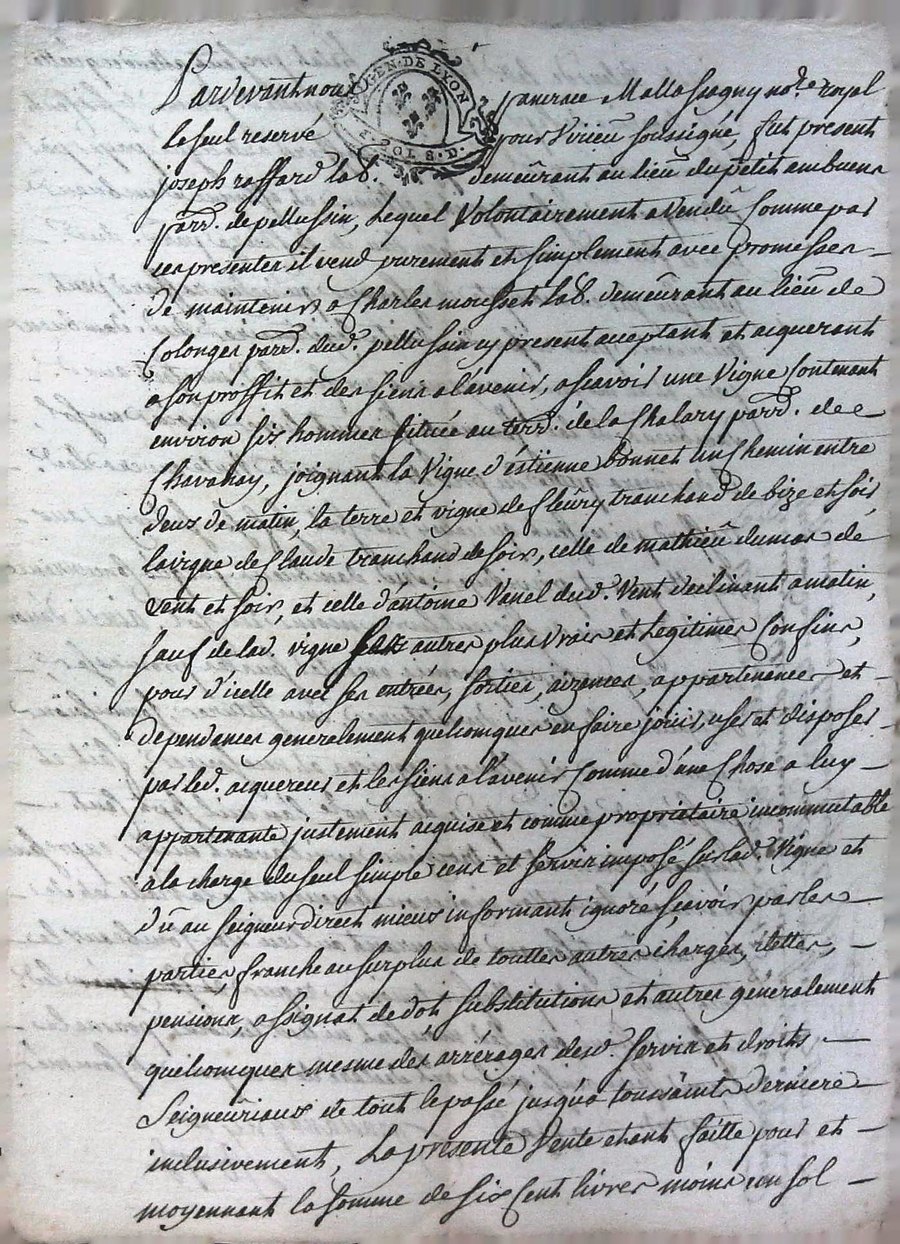 GEN. DE LYON
SOLS. D.
Pardevant nous pancrace Mallassagny no.re royal
le seul reservé pour Virieu soussigné, fut present
joseph raffard lab.r demeurant au lieu du petit ambuent
parr. de pellussin, Lequel Volontairement a Vendû Comme par
ces presentes il vend purement et simplement avec promesses
de maintenir a Charles mousset lab.r demeurant au lieu de
Colonges parr. dud. pellussin cy present acceptant et acquerant
a son proffit et des siens a l'avenir, ascavoir une Vigne Contenant
environ six hommes située au terr. de la Chalary parr. de
Chavanay, joignant la Vigne d'estienne bonnet un Chemin entre
deux de matin, la terre et vigne de fleury tranchand de bize et soir
la vigne de Claude tranchand de soir, celle de mathieu dumas de
vent et soir, et celle d'antoine Vanel dud. Vent declinant a matin,
sauf de lad. vigne ses autres plus vrais et Legitimes Confins,
pour d'icelle avec ses entrées, sorties, aizences, appartenances et
dependances generalement quelconques en faire jouir, user et disposer
par led. acquereur et les siens a l'avenir Comme d'une Chose a luy
appartenante justement acquise et comme propriétaire incommutable
a la charge du seul simple cens et servis imposé sur lad. Vigne et
dû au seigneur direct mieux informant ignoré scavoir par les
parties, franche au surplus de touttes autres charges, dettes,
pensions, assignat de dot, substitutions et autres généralement
quelconques mesme des arrérages desd. servis et droits
Seigneûriaux de tout le passé jusqu'a toussaints derniere
inclusivement, La présente Vente etant faitte pour et
moyennant la somme de six Cent livres moins un sol